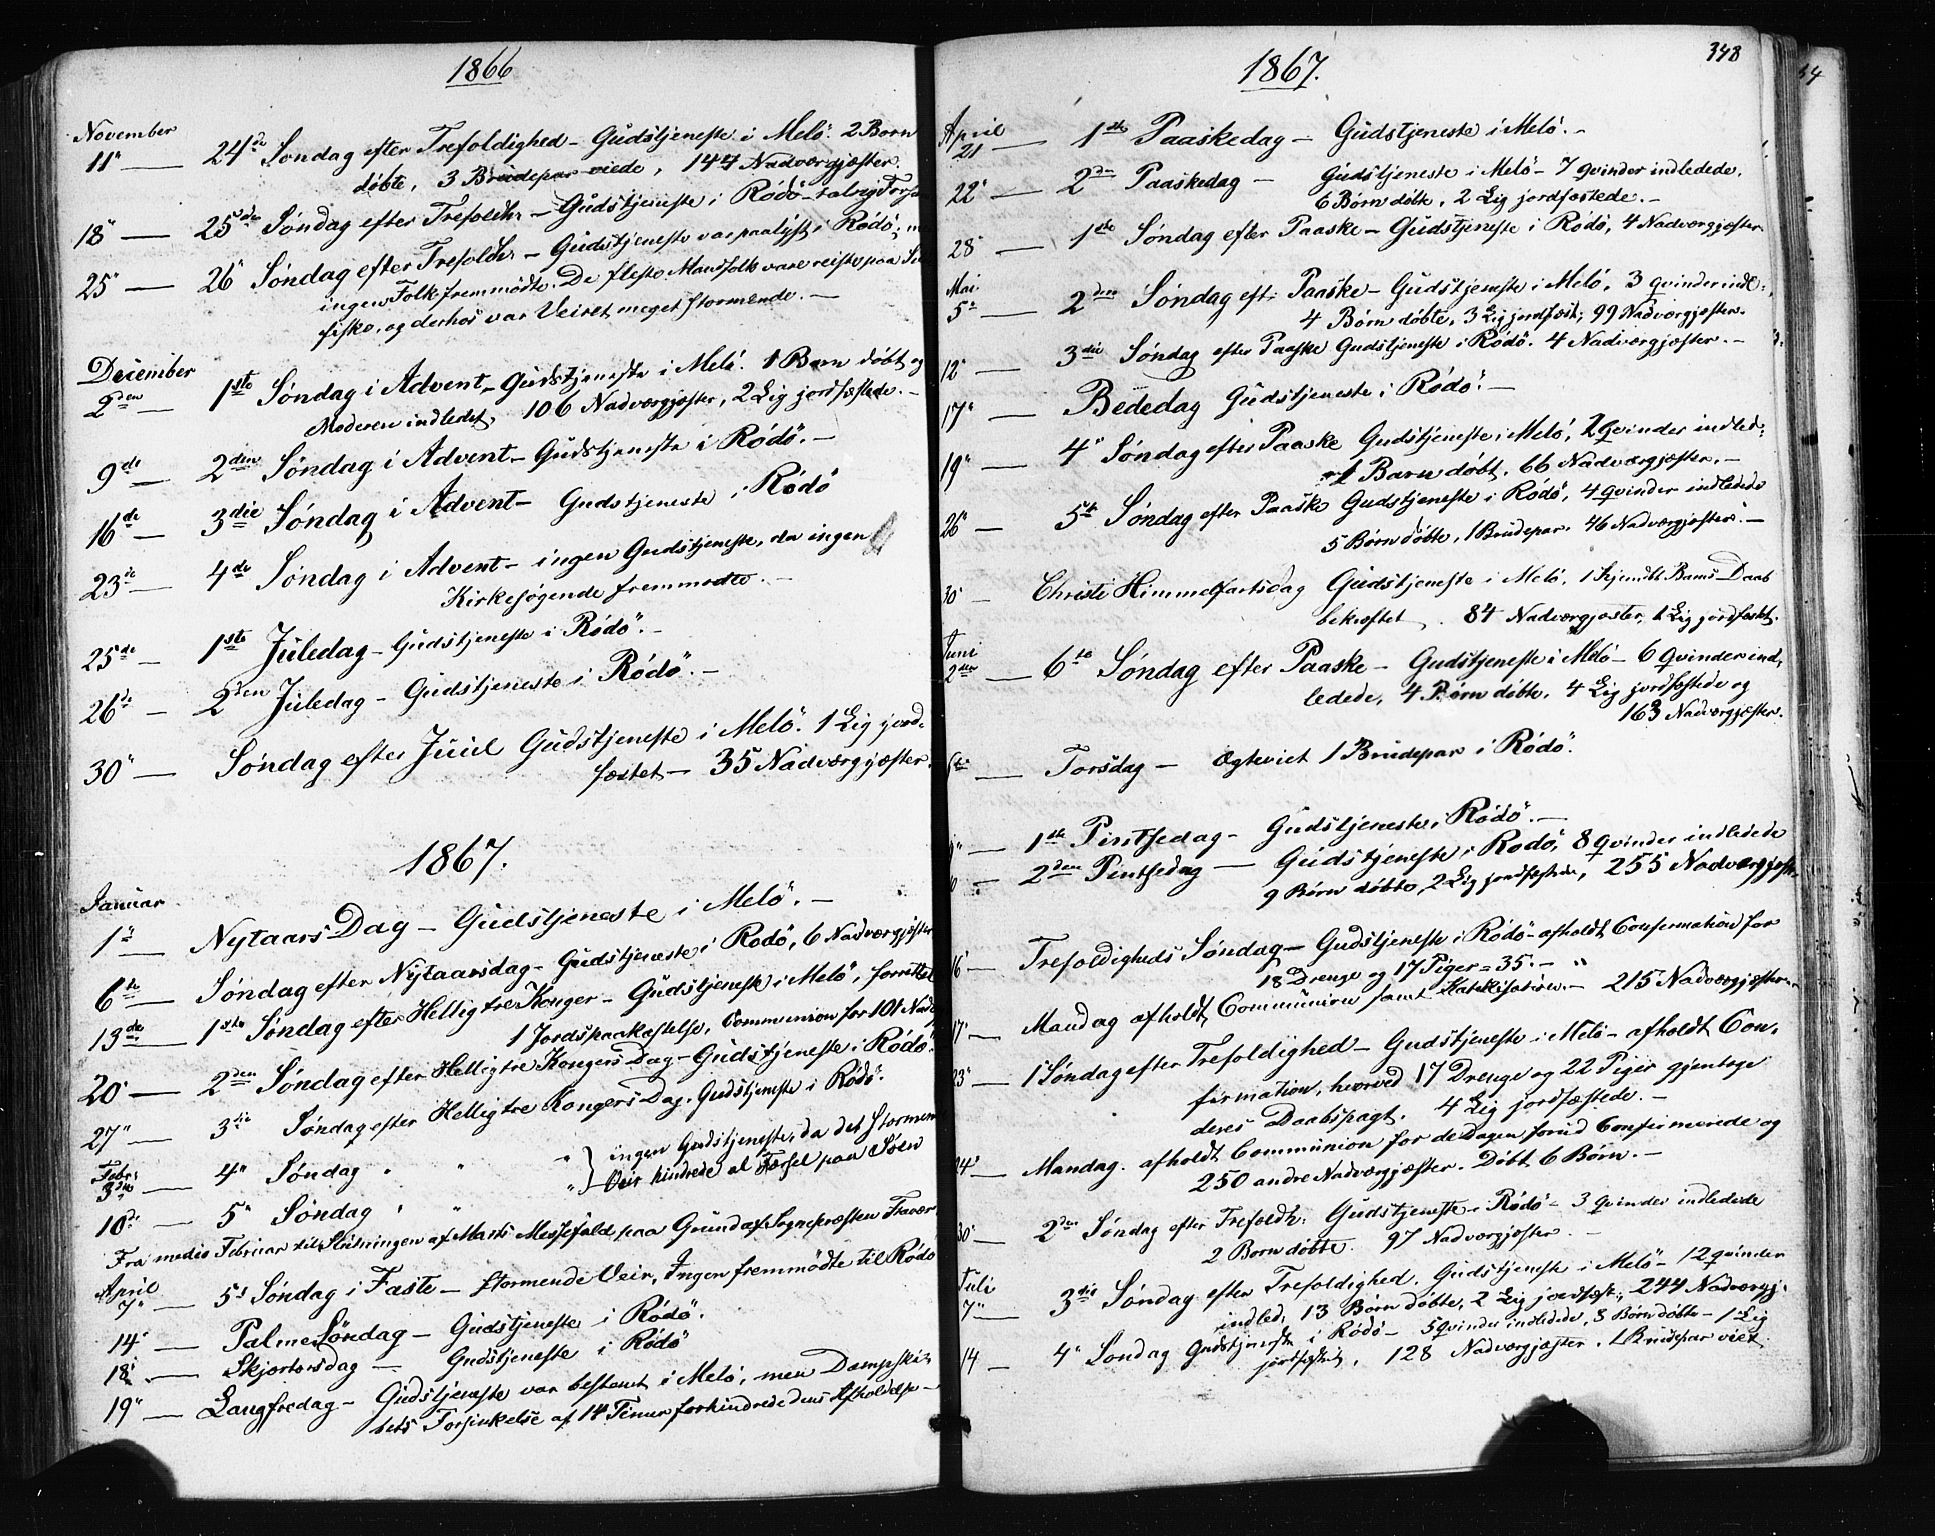 1866
November
11" — 24de Søndag efter Trefoldighed – Gudstjeneste i Melö. 2 Børn
døbte, 3 Brudepar viede, 144 Nadvergjæster.
18" — 25de Søndag efter Trefoldh. – Gudstjeneste i Rödö
25" — 26" Søndag efter Trefoldh. – Gudstjeneste var paalyst i Rödö,
ingen Folk fremmødte. De fleste Mandfolk vare reiste paa
fiske, og derhos var Veiret meget stormende. –
December
2den — 1ste Søndag i Advent – Gudstjeneste i Melö. 1 Barn døbt og
Moderen indledet, 106 Nadvergjæster, 2 Lig jordfæstede. –
9de — 2den Søndag i Advent – Gudstjeneste i Rödö. –
16de — 3die Søndag i Advent – Gudstjeneste i Rödö
23de — 4de Søndag i Advent – ingen Gudstjeneste, da ingen
Kirkesøgende fremmødte. –
25de — 1ste Juledag – Gudstjeneste i Rödö. –
26de — 2den Juledag – Gudstjeneste i Rödö. –
30" — Søndag efter Juul Gudstjeneste i Melö. 1 Lig jord-
fæstet – 35 Nadvergjæster.
1867.
Januar
1" — Nytaars Dag – Gudstjeneste i Melö. –
6te — Søndag efter Nytaarsdag – Gudstjeneste i Rödö, 6 Nadvergjæster
13de — 1ste Søndag efter Hellig tre Konger – Gudstjeneste i Melö, forrettet
1 Jordspaakastelse, Communion for 101
20" — 2den Søndag efter Hellig tre Kongers Dag – Gudstjeneste i Rödö.
27" — 3die Søndag efter Hellig tre Kongers Dag. Gudstjeneste i Rödö.
Febr.
3die — 4" Søndag " " " } ingen Gudstjeneste, da det stormende
10de — 5" Søndag " " " } Veir hindrede al Færsel paa Søen
Fra medio Februar til Slutningen af Marts Messefald paa Grund af Sognepræsten Fravær
April
7" — 5te Søndag i Faste – stormende Veir, Ingen fremmødte til Rödö
14" — Palme Söndag – Gudstjeneste i Rödö.
18" — Skjærtorsdag — Gudstjeneste i Rödö
19" — Langfredag – Gudstjeneste var bestemt i Melö, men Dampski-
bets Forsinkelse af 14 Timer forhindrede dens Afholdelse –
1867.
348
April
21 — 1ste Paaskedag – Gudstjeneste i Melö. –
22" — 2den Paaskedag – Gudstjeneste i Melö – 7 Qvinder indledede,
6 Børn døbte, 2 Lig jordfæstede. –
28" — 1ste Søndag efter Paaske – Gudstjeneste i Rödö, 4 Nadvergjæster
Mai
5te — 2den Søndag eft: Paaske – Gudstjeneste i Melö, 3 Qvinder indl:,
4 Børn døbte, 3 Lig jordfæst:, 99 Nadvergjæster.
12" — 3die Søndag efter Paaske Gudstjeneste i Rödö. 4 Nadvergjæster. –
17" — Bededag Gudstjeneste i Rödö. –
19" — 4" Søndag efter Paaske Gudstjeneste i Melö, 2 Qvinder indled:
1 Barn døbt. 66 Nadvergjæster. –
26" — 5te Søndag efter Paaske Gudstjeneste i Rödö, 4 Qvinder indledede
5 Børn døbte, 1 Brudepar. 46 Nadvergjæster. –
30" — Christi Himmelfartsdag Gudstjeneste i Melö, 1 hjemdbt Barns Daab
bekræftet, 84 Nadvergjæster, 1 Lig jordfæstet.
Juni
2den — 6te Søndag efter Paaske – Gudstjeneste i Melö – 6 Qvinder ind-
ledede, 4 Børn døbte, 4 Lig jordfæstede og
163 Nadvergjæster.
6te — Torsdag – Ægteviet 1 Brudepar i Rödö.
9" — 1ste Pintsedag – Gudstjeneste i Rödö. –
10 — 2den Pintsedag — Gudstjeneste i Rödö, 8 Qvinder indledede
9 Børn døbte, 2 Lig jordfæstede, 255 Nadvergjæster
16" — Trefoldigheds Søndag – Gudstjeneste i Rödö – afholdt Confirmation for
18 Drenge og 17 Piger = 35. – "
17" — Mandag afholdt Communion samt Katekisation. – 215 Nadvergjæster. –
23" — 1 Søndag efter Trefoldighed – Gudstjeneste i Melö – afholdt Con-
firmation, hvorved 17 Drenge og 22 Piger gjentoge
deres Daabspagt. 4 Lig jordfæstede. –
24" — Mandag. afholdt Communion for de Dagen forud Confirmerede og
250 andre Nadvergjæster. Døbt 6 Børn. –
30" — 2den Søndag efter Trefoldh. Gudstjeneste i Rödö – 3 Qvinder indledede
2 Børn døbte. 97 Nadvergjæster. –
Juli
7" — 3die Søndag efter Trefoldighed. Gudstjeneste i Melö – 12 Qvinder
indled, 13 Børn døbte, 2 Lig jordfæst:, 244 Nadvergj.
14 — 4" Søndag Gudstjeneste i Rödö – 5 Qvinder indledede, 3 Børn døbte – 1 Lig
jordfæstet, 128 Nadvergjæster. 1 Brudepar viet.